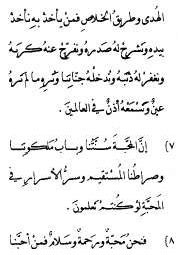 الهدى وطريق الخلاص فمن يأخذ به نأخذ
بيده ونشرح له صدره ونفرّج عنه كربه
ونغفر له ذنبه وندخله جناتنا ونريه ما لم تره
عين وتسمعه أذن في العالمين.
٧) إنّ المحبّة سنّتنا وباب ملكوتنا
وصراطنا المستقيم وسرّ الأسرار في
المحبّة لو كنتم تعلمون.
٨) فنحن محبّة ورحمة وسلام فمن أحبّنا